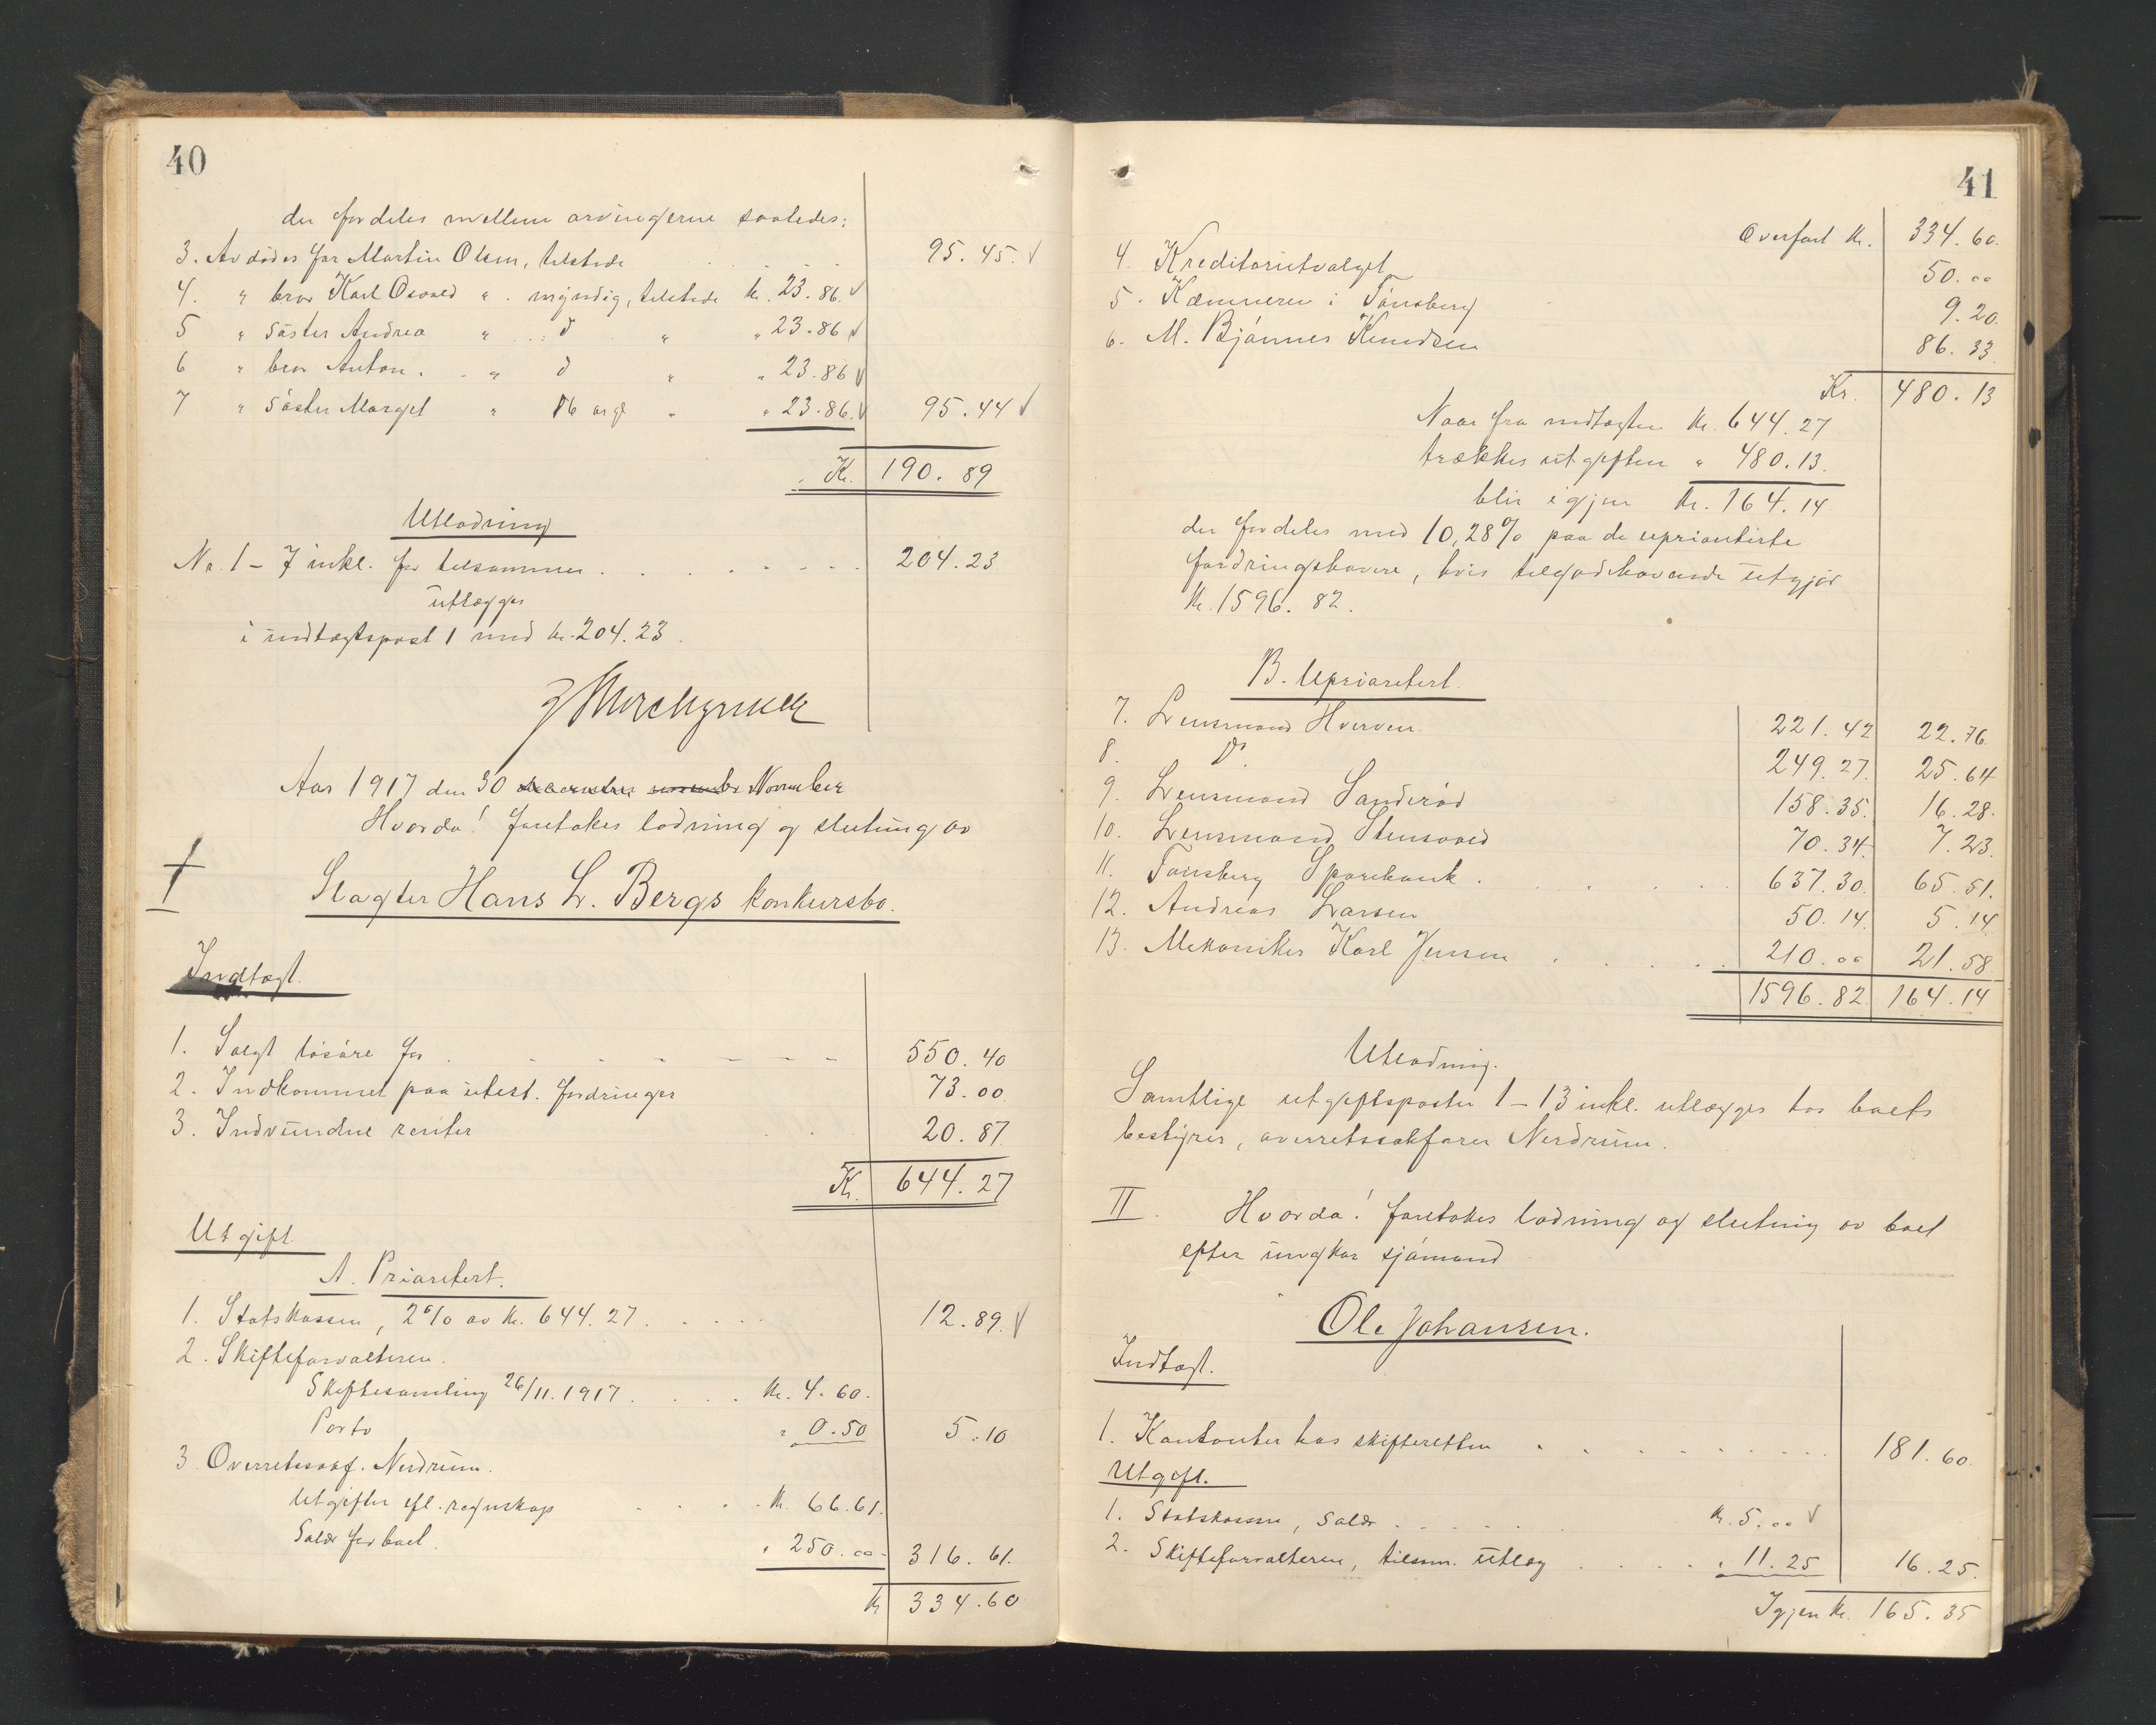 40
der fordeles mellem arvingerne saaledes:
3. Avdødes far Martin Olsen, tilstede . . . . 95.45.
4. " bror Karl Osvald " . myndig, tilstede kr. 23.86.
5 " søster Andrea " d " " 23.86
6 " bror Anton . " d " " 23.86
7 " søster Margit " 16 argl " " 23.86. 95.44
Kr. 190.89
Utlodning
No. 1 - 7 inkl. får tilsammen . . . . . . . 204.23
utlægges
i indtægtspost 1 med kr. 204.23.
Aar 1917 den 30 November
Hvorda! foretokes lodning og slutning av
I
Slagter Hans L. Bergs konkursbo.
Indtægt.
1. Solgt løsøre for . . . . . . . 550.40
2. Indkommet paa utest. fordringer 73.00.
3. Indvundne renter . . 20.87.
Kr. 644.27
Utgift.
A. Prioritert.
1. Statskassen, 2% av kr. 644.27 . . . . . 12.89.
2. Skifteforvalteren.
Skiftesamling 26/11. 1917. . . . kr. 4.60.
Porto " 0.50 5.10
3 Overretssakf. Nerdrum.
Utgifter efl. regnskap . . . . kr. 66.61.
Salær for boet. " 250.00 316.61.
kr 334.60
41
Overført kr. 334.60.
4. Kreditorutvalget 50.00
5. Kæmneren i Tønsberg 9.20.
6. M. Bjønnes Knudsen 86.33.
Kr. 480.13
Naar fra indtægten kr. 644.27
trækkes utgiften " 480.13.
blir igjen kr. 164.14
der fordeles med 10,28% paa de uprioriterte
fordringshavere, hvis tilgodehavende utgjør
kr. 1596.82.
B. Uprioritert.
7. Lensmand Hverven 221.42 22.76.
8. Do. 249.27. 25.64
9. Lensmand Sanderød 158.35. 16.28.
10. Lensmand Stensvold 70.34. 7.23.
11. Tønsberg Sparebank . . . . . 637.30. 65.51.
12. Andreas Larsen 50.14. 5.14
13. Mekaniker Karl Jensen . . . . . 210.00 21.58
1596.82. 164.14
Utlodning.
Samtlige utgiftsposter 1 - 13 inkl. utlægges hos boets
bestyrer, overretssakfører Nerdrum.
II. Hvorda! foretokes lodning og slutning av boet
efter ungkar sjømand
Ole Johansen.
Indtægt.
1. Kontanter hos skifteretten . . . . . . . . 181.60.
Utgift.
1. Statskassen, salær . . . . . . kr. 5.00
2. Skifteforvalteren, tilsam. utlæg . . . . " 11.25 16.25.
Igjen kr. 165.35